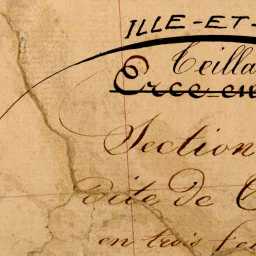 ILLE-ET-
Teilla
Erce en
Section
dite de
en trois